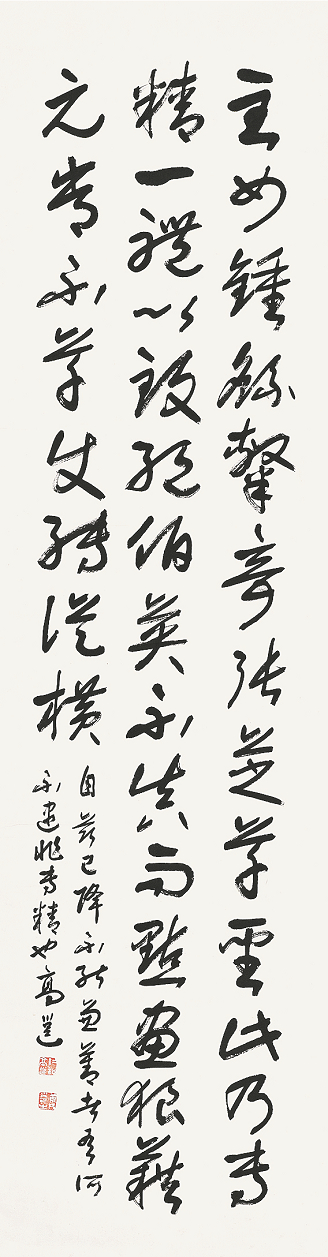 至如鍾繇隸奇張芝草聖此乃專
精一體以致絕伯英不真而點畫狼藉
元常不草使轉縱橫
自茲已降不能兼善者有所
不逮非專精也高邕